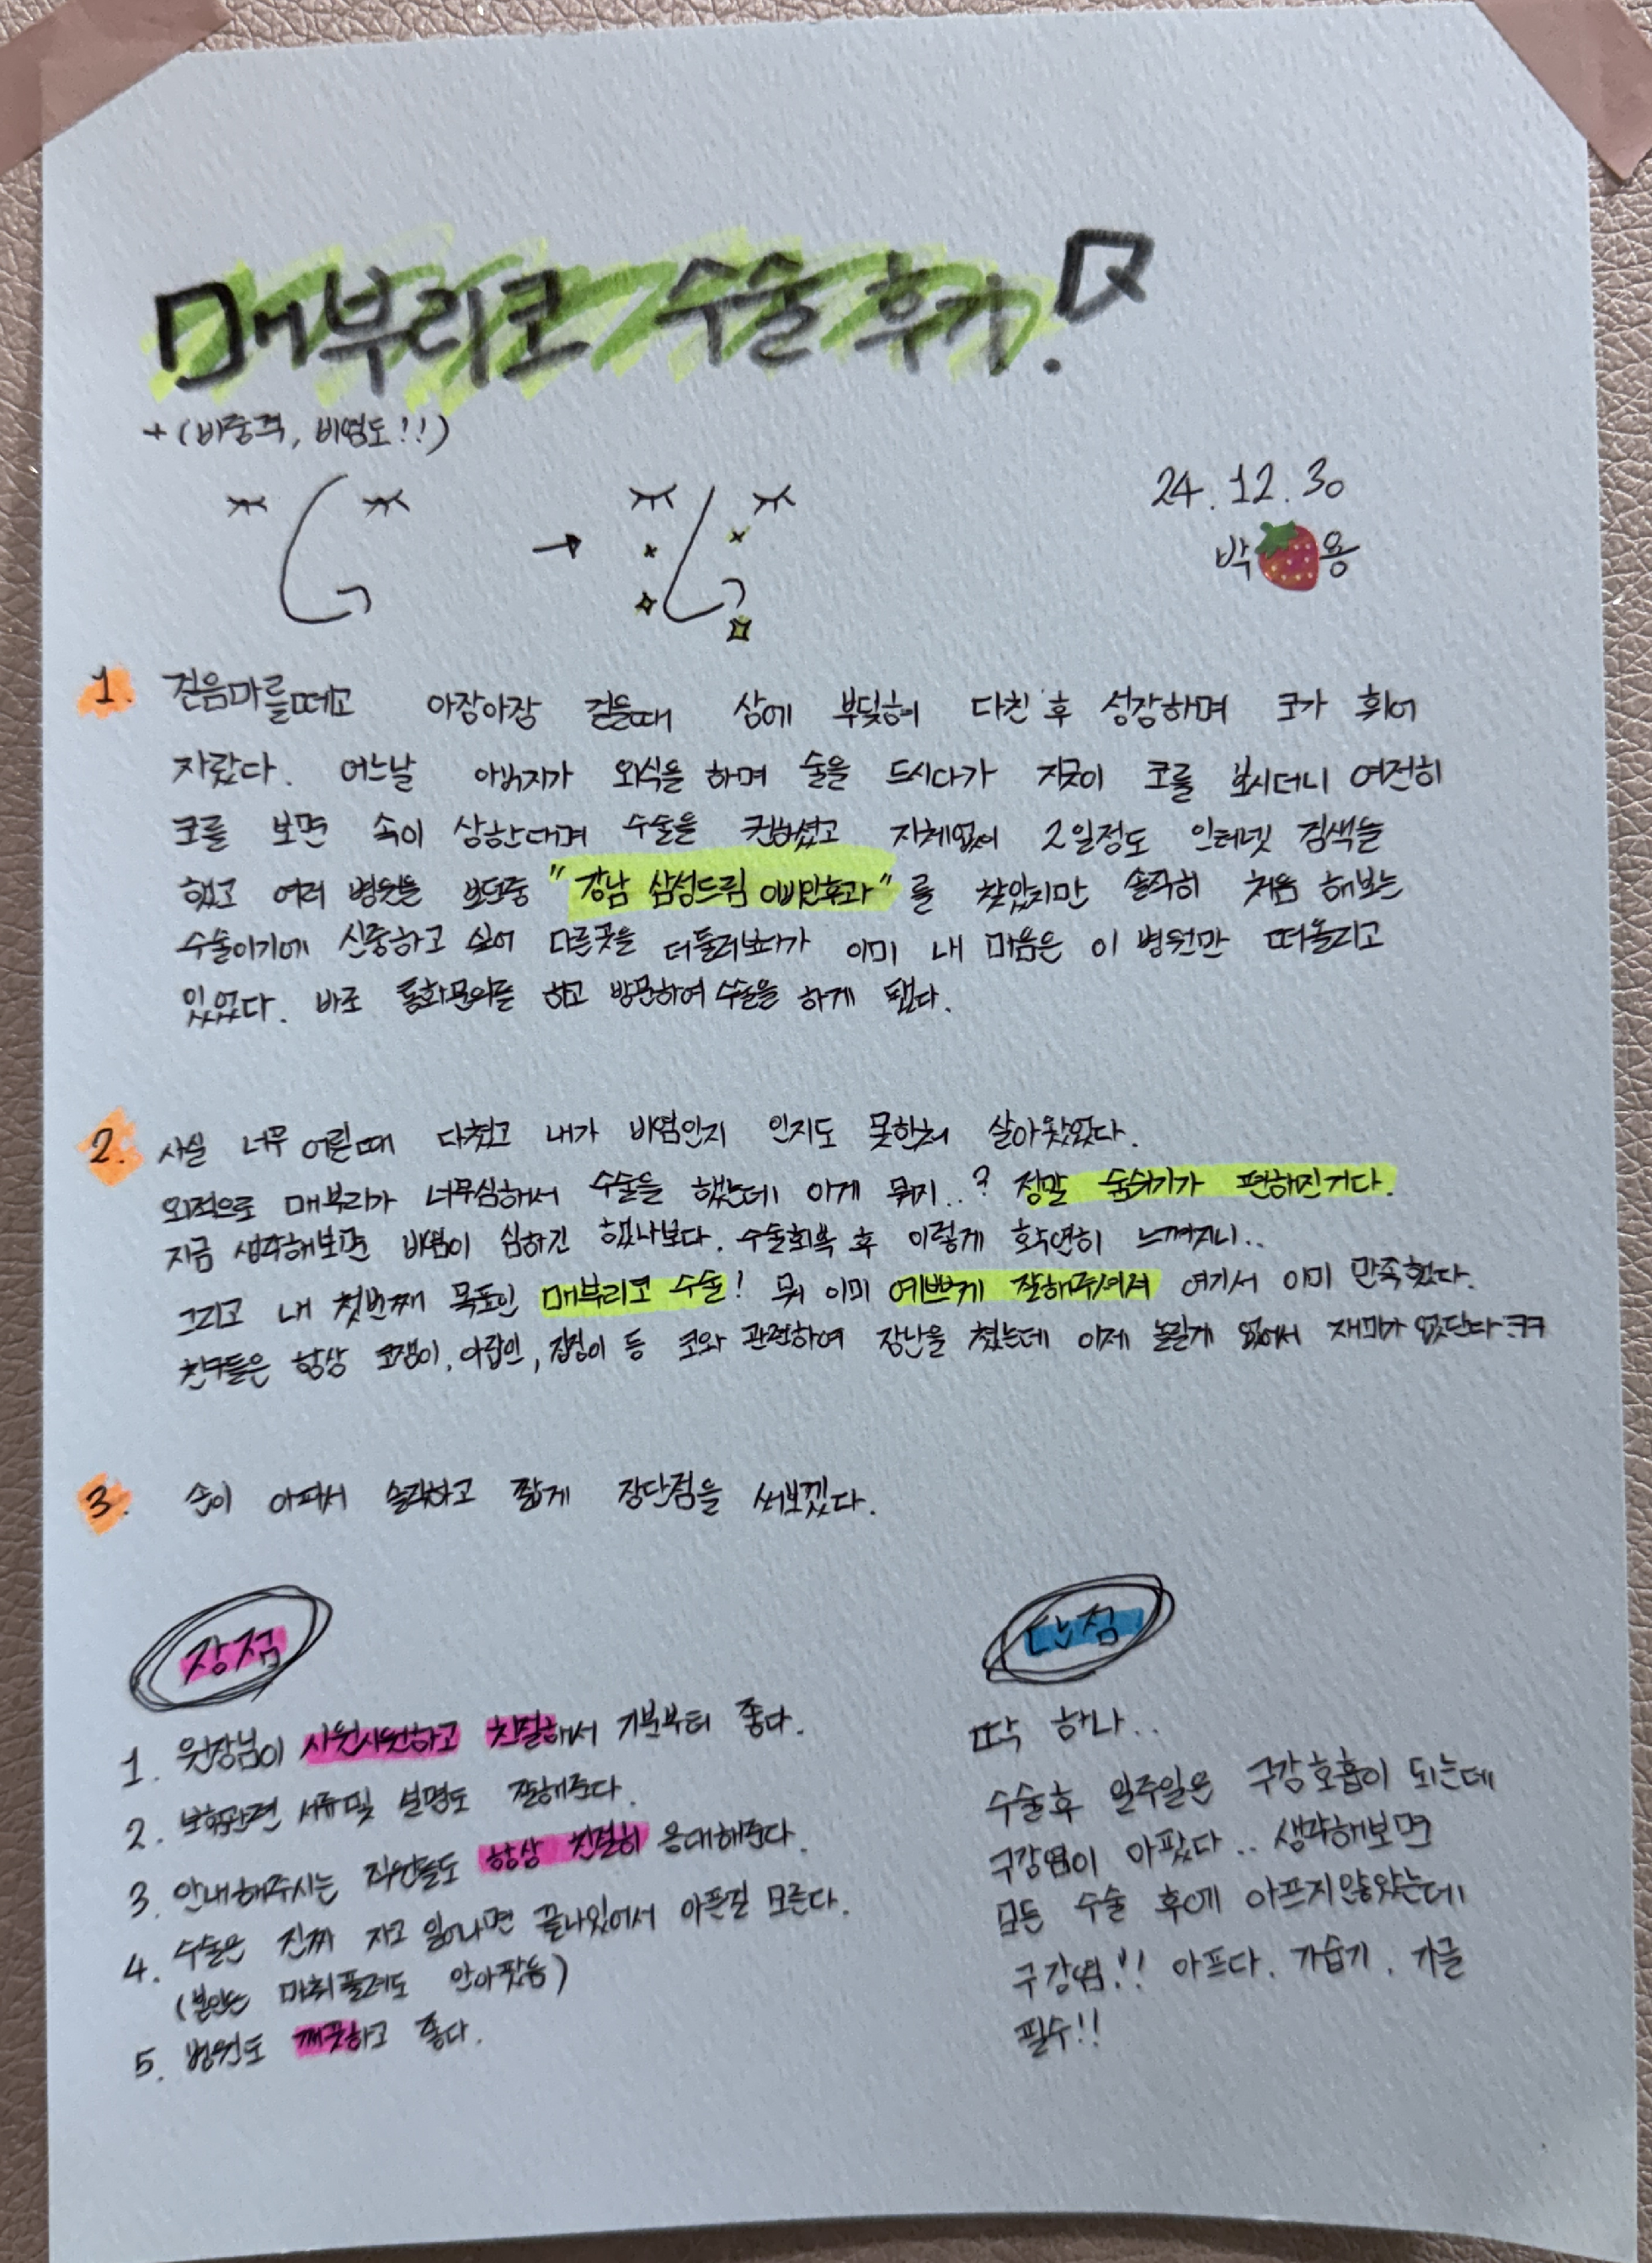 매부리코 수술 후기.
+(비중격, 비염도!!)
24.12.30
박 용
1. 걸음마를떼고 아장아장 걸을때 상에 부딪혀 다친 후 성장하며 코가 휘어
자랐다. 어느날 아버지가 외식을 하며 술을 드시다가 지긋이 코를 보시더니 여전히
코를 보면 속이 상한다며 수술을 권하셨고 지체없이 2일정도 인터넷 검색을
했고 여러 병원을 보던중 "강남 삼성드림 이비인후과"를 찾았지만 솔직히 처음 해보는
수술이기에 신중하고 싶어 다른곳을 더둘러보다가 이미 내 마음은 이 병원만 떠올리고
있었다. 바로 통화문의를 하고 방문하여 수술을 하게 됐다.
2. 사실 너무 어릴때 다쳤고 내가 비염인지 인지도 못한채 살아왔었다.
외적으로 매부리가 너무심해서 수술을 했는데 이게 뭐지..? 정말 숨쉬기가 편해진거다.
지금 생각해보면 비염이 심하긴 했나보다. 수술회복 후 이렇게 확연히 느껴지니..
그리고 내 첫번째 목표인 매부리코 수술! 뭐 이미 예쁘게 잘해주셔서 여기서 이미 만족했다.
친구들은 항상 코쟁이, 아랍인, 집정이 등 코와 관련하여 장난을 쳤는데 이제 놀릴게 없어서 재미가 없단다ㅋㅋ
3. 손이 아파서 솔직하고 짧게 장단점을 써보겠다.
장점
1. 원장님이 시원시원하고 친절해서 기분부터 좋다.
2. 보험관련 서류및 설명도 잘해준다.
3. 안내해주시는 직원들도 항상 친절히 응대해준다.
4. 수술은 진짜 자고 일어나면 끝나있어서 아픈걸 모른다.
(본인은 마취풀려도 안아팠음)
5. 병원도 깨끗하고 좋다.
단점
딱 하나..
수술후 일주일은 구강호흡이 되는데
구강염이 아팠다.. 생각해보면
모든 수술 후에 아프지않았는데
구강염!! 아프다. 가습기. 가글
필수!!